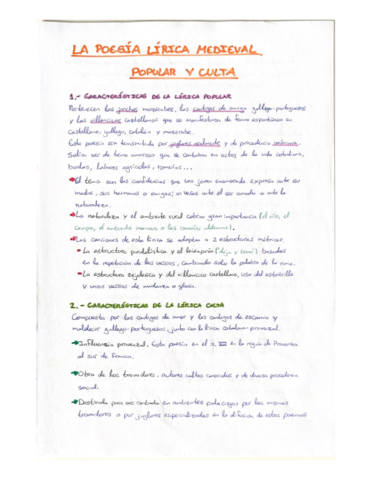 LA POESÍA LÍRICA MEDIEVAL
POPULAR Y CULTA
1.- CARACTERÍSTICAS DE LA LÍRICA POPULAR
Pertenecen las jarchas mozárabes, las cantigas de amigo gallego-portuguesas
y los villancicos castellanos que se manifiestan de forma espontánea en
castellano, gallego, catalán y mozárabe.
Esta poesía era transmitida por juglares oralmente y de procedencia anónima.
Solían ser de tema amoroso que se cantaban en actos de la vida cotidiana,
bodas, labores agrícolas, romerías...
El tema son las confidencias que una joven enamorada expresa ante su
madre, sus hermanas o amigas; a veces ante el ser amado o ante la
naturaleza.
La naturaleza y el ambiente rural cobran gran importancia (el río, el
campo, el ambiente marinero o las canciones
Las canciones de esta lírica se adaptan a 2 estructuras métricas:
La estructura paralelística y el leixaprén (deja y toma) basadas
en la repetición de los versos, cambiando solo la palabra de la rima.
La estructura zejelesca y del villancico castellano, uso del estribillo
y unos versos de mudanza o glosa.
2.- CARACTERÍSTICAS DE LA LÍRICA CULTA
Compuesta por las cantigas de amor y las cantigas de escarnio y
maldecir gallego-portuguesas, junto con la lírica catalana provenzal.
Influencia provenzal. Esta poesía en el s. XII en la región de Provenza
al sur de Francia.
Obra de los trovadores, autores cultos conocidos y de diversa procedencia
social.
Destinada para ser cantada en ambientes palaciegos por los mismos
trovadores o por juglares especializados en la difusión de estos poemas